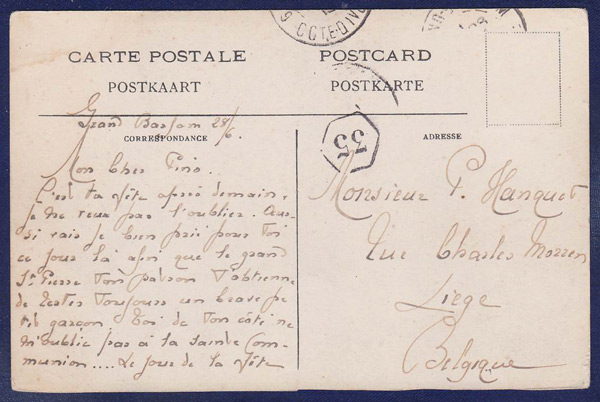 CARTE POSTALE
POSTCARD
POSTKAART
POSTKARTE
CORRESPONDANCE
ADRESSE
CÔTE D'IV
35
Grand Bassam 28/6.
Mon Cher Pino.
C'est ta fête après demain,
je ne veux pas l'oublier. Aus-
si vais je bien prié pour toi
ce jour là afin que le grand
St Pierre ton patron t'obtienne
de rester toujours un brave pe
tit garçon. Toi de ton côté ne
m'oublie pas à la sainte Com-
munion.... Le jour de la fête
Monsieur P. Hanquet
Rue Charles Morren
Liège
Belgique